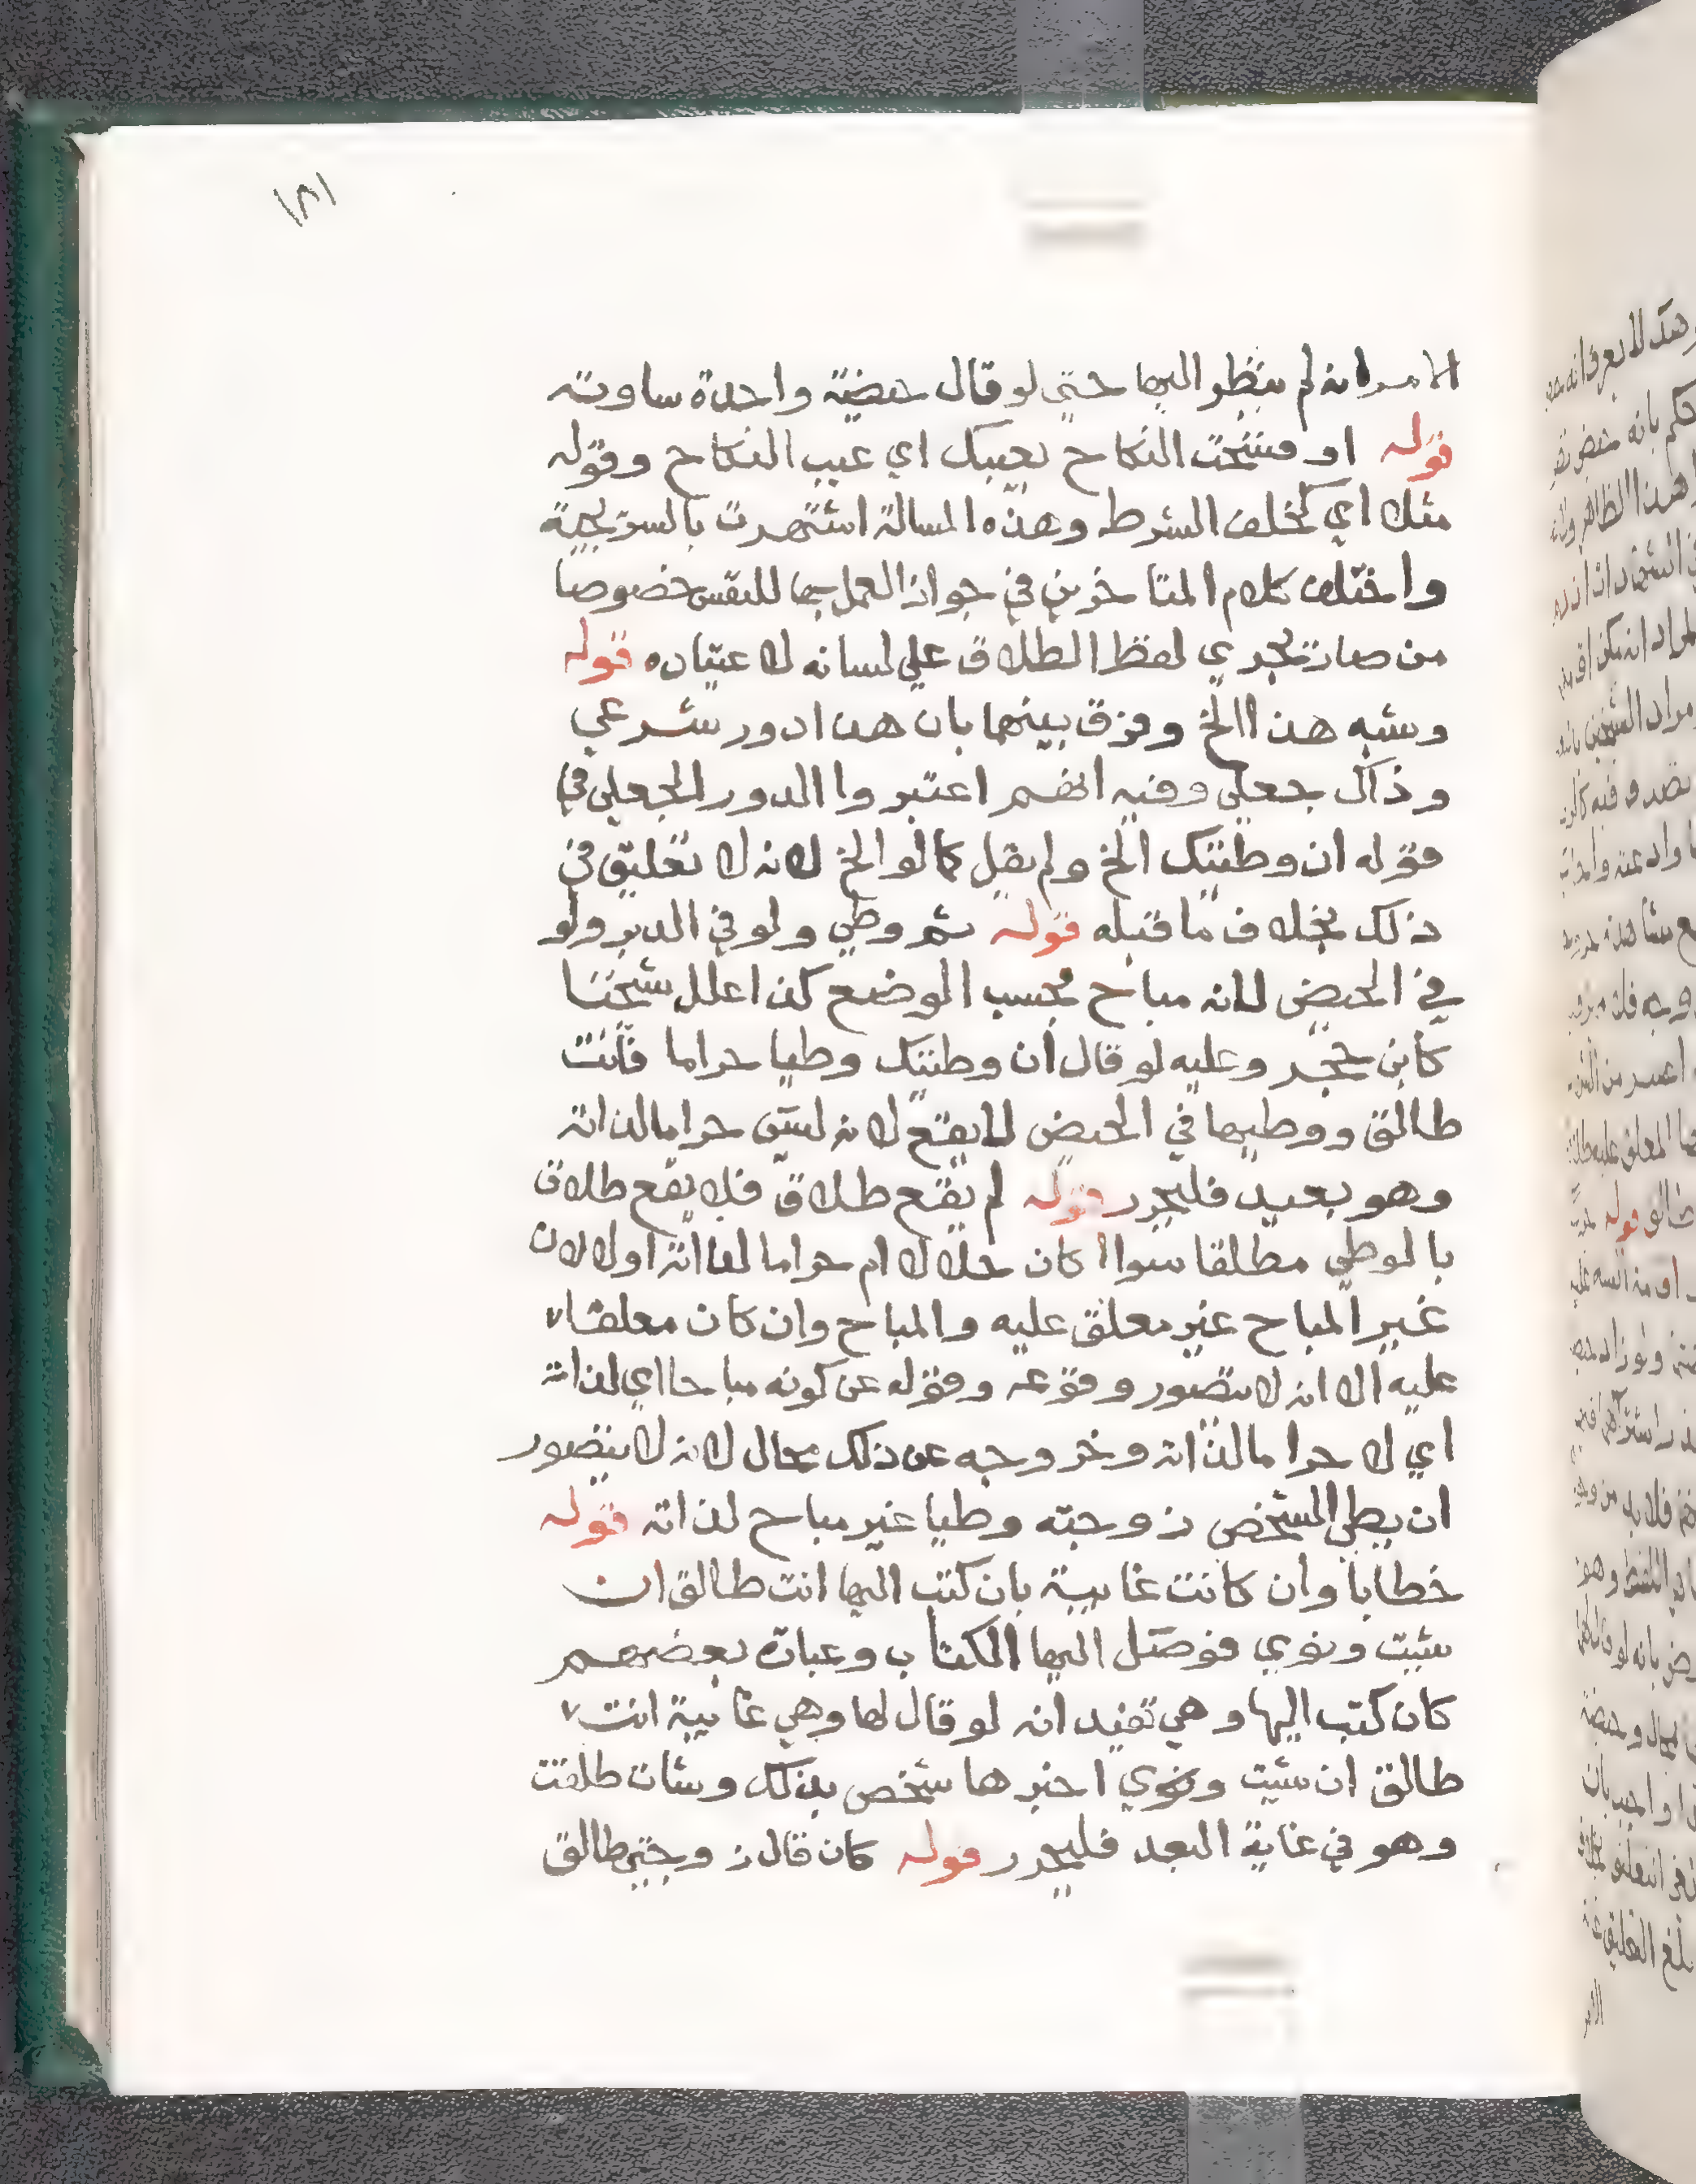 ١٨١
الامر انه لم ينظر اليها حتى لو قال حيضية واحدة ساوته
قوله او فسخت النكاح بعيبك اي عيب النكاح وقوله
مثلا اي كخلف الشرط وهذه المسالة اشتهرت بالسريجية
واختلف كلام المتاخرين في جواز العمل بها للنفس خصوصا
من صار يجري لفظ الطلاق علي لسانه لاعتياده قوله
وشبه هذا الخ وفرق بينهما بان هذا دور شرعي
وذاك جعلي وفيه انهم اعتبروا الدور الجعلي في
قوله ان وطئتك الخ ولم يقل كما لو الخ لانه لا تعليق في
ذلك بخلاف ما قبله قوله ثم وطي ولو في الدبر ولو
في الحيض لانه مباح بحسب الموضع كذا علل شيخنا
كابن حجر وعليه لو قال ان وطئتك وطيا حراما فانت
طالق ووطيها في الحيض لا يقع لانه ليس حراما لذاته
وهو بعيد فليحرر قوله لم يقع طلاق فلا يقع طلاق
بالوطي مطلقا سواا كان حلالا ام حراما لذاته اولا لان
غير المباح غير معلق عليه والمباح وان كان معلقا
عليه الا انه لا يتصور وقوعه وقوله عن كونه مباحا اي لذاته
اي لا حراما لذاته وخروجه عن ذلك محال لانه لا يتصور
ان يطي الشخص زوجته وطيا غير مباح لذاته قوله
خطابا وان كانت غايبة بان كتب اليها انت طالق ان
شيت ونوي فوصل اليها الكتاب وعبارة بعضهم
كان كتب اليها وهي تفيد انه لو قال لها وهي غايبة انت
طالق ان شيت ونوي اخبرها شخص بذلك وشات طلقت
وهو في غاية البعد فليحرر قوله كان قال زوجتي طالق